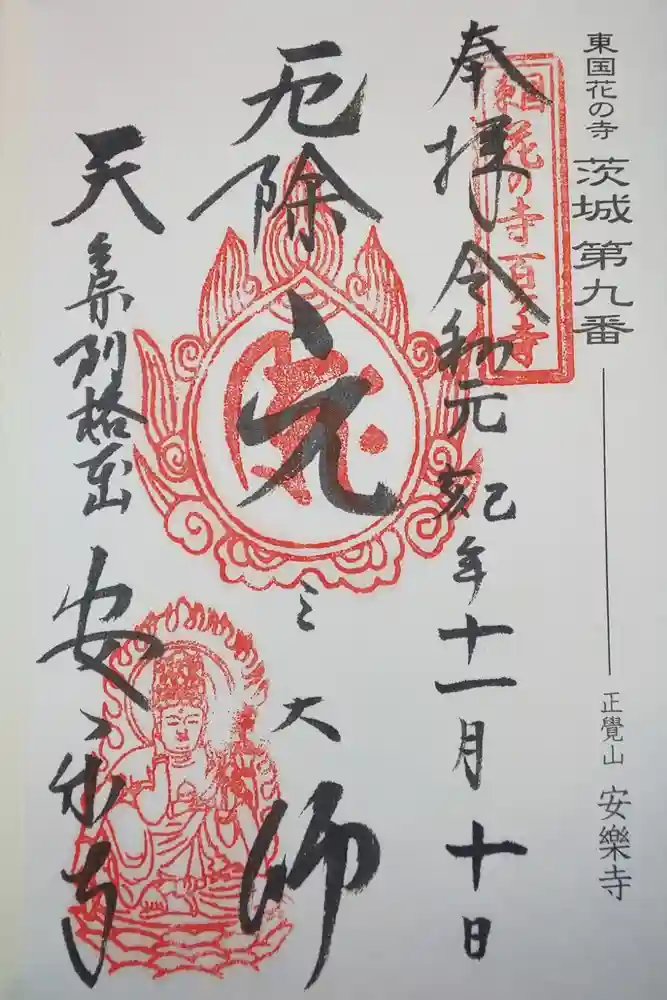 東国花の寺 茨城 第九番 正覺山 安樂寺
東国花の寺百ヶ寺
奉拝 令和元己亥年十一月十日
厄除 元三大師
天台別格本山 安楽寺